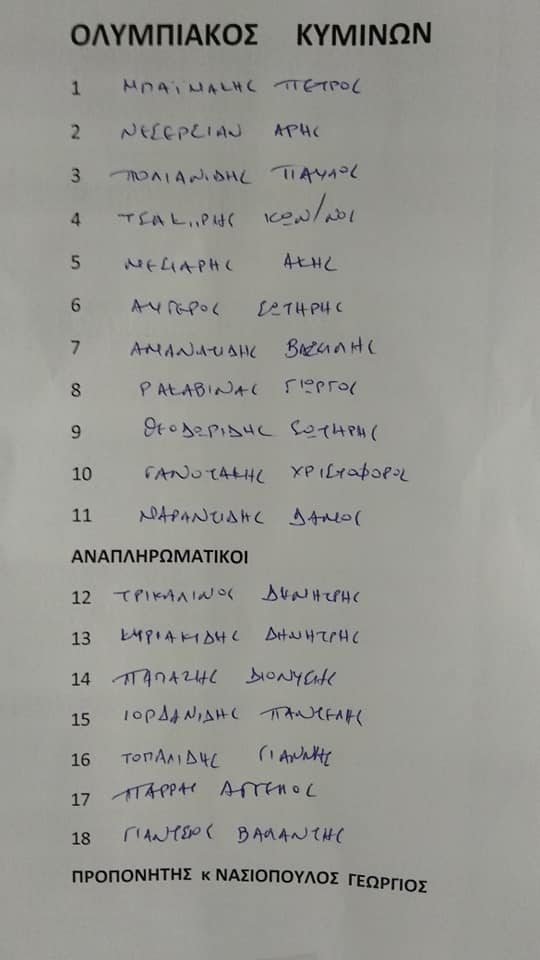 ΟΛΥΜΠΙΑΚΟΣ ΚΥΜΙΝΩΝ
1 ΜΠΑΪΜΑΚΗΣ ΠΕΤΡΟΣ
2 ΝΕΣΕΡΣΙΑΝ ΑΡΗΣ
3 ΠΟΛΙΑΝΙΔΗΣ ΠΑΥΛΟΣ
4 ΤΣΑΚΙΡΗΣ ΚΩΝ/ΝΟΣ
5 ΑΚΗΣ
6 ΑΥΓΕΡΟΣ ΣΩΤΗΡΗΣ
7 ΑΜΑΝΑΤΙΔΗΣ ΒΑΣΙΛΗΣ
8 ΡΑΚΑΒΙΝΑΣ ΓΙΩΡΓΟΣ
9 ΘΕΟΔΩΡΙΔΗΣ ΣΩΤΗΡΗΣ
10 ΓΑΝΩΤΑΚΗΣ ΧΡΙΣΤΟΦΟΡΟΣ
11 ΜΑΡΑΝΤΙΔΗΣ ΔΑΜΟΣ
ΑΝΑΠΛΗΡΩΜΑΤΙΚΟΙ
12 ΤΡΙΚΑΛΙΝΟΣ ΔΗΜΗΤΡΗΣ
13 ΚΥΡΙΑΚΙΔΗΣ ΔΗΜΗΤΡΗΣ
14 ΠΑΠΑΖΗΣ ΔΙΟΝΥΣΗΣ
15 ΙΟΡΔΑΝΙΔΗΣ ΠΑΝΤΕΛΗΣ
16 ΤΟΠΑΛΙΔΗΣ ΓΙΑΝΝΗΣ
17 ΠΑΡΡΑΣ ΑΓΓΕΛΟΣ
18 ΓΙΑΝΤΣΙΟΣ ΒΑΪΑΝΤΗΣ
ΠΡΟΠΟΝΗΤΗΣ κ ΝΑΣΙΟΠΟΥΛΟΣ ΓΕΩΡΓΙΟΣ